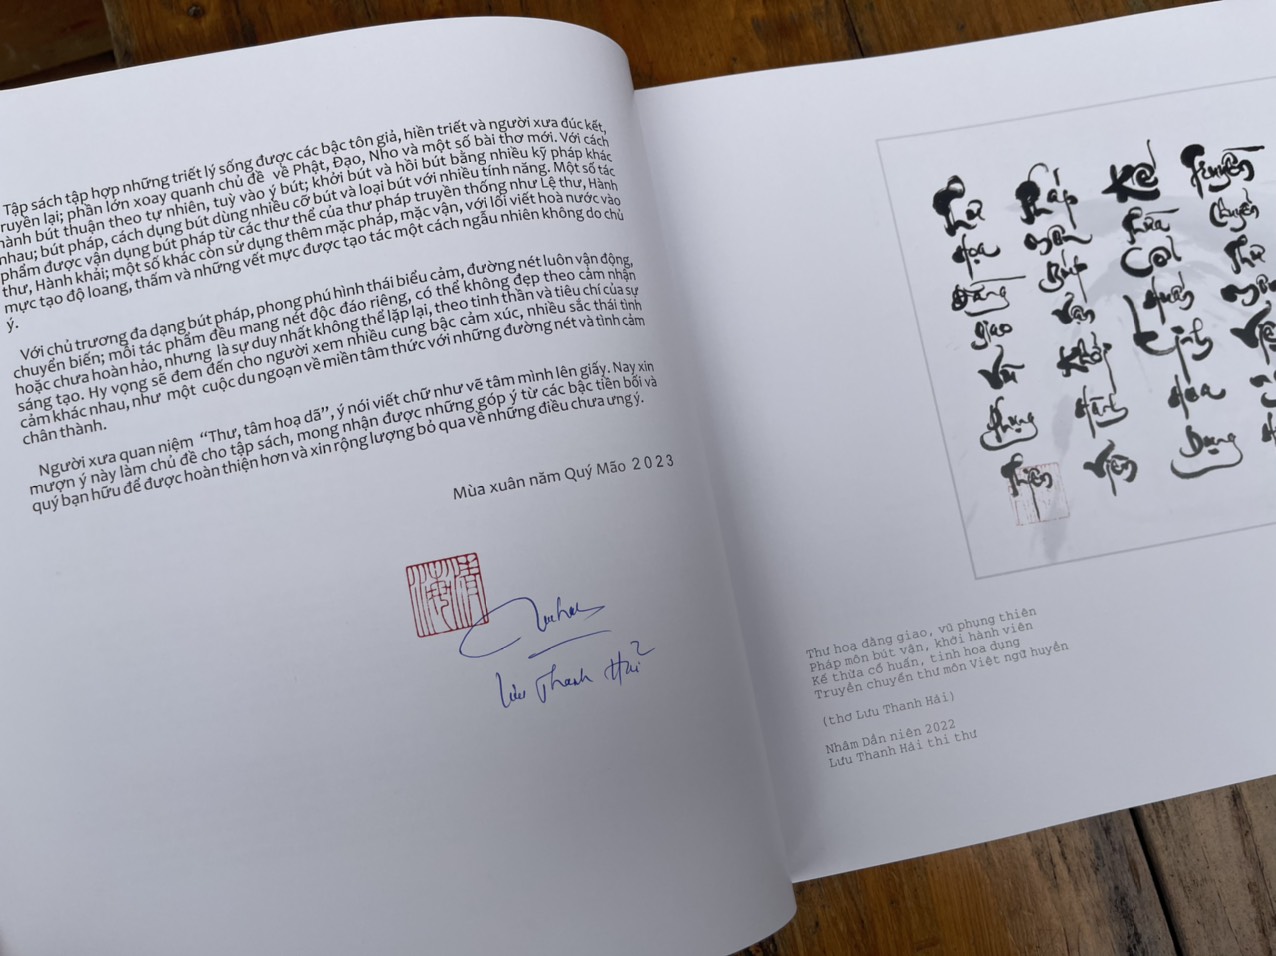 Tập sách tập hợp những triết lý sống được các bậc tôn giả, hiền triết và người xưa đúc kết,
truyền lại; phần lớn xoay quanh chủ đề về Phật, Đạo, Nho và một số bài thơ mới. Với cách
hành bút thuận theo tự nhiên, tuỳ vào ý bút; khởi bút và hồi bút bằng nhiều kỹ pháp khác
nhau; bút pháp, cách dụng bút dùng nhiều cỡ bút và loại bút với nhiều tính năng. Một số tác
phẩm được vận dụng bút pháp từ các thư thể của thư pháp truyền thống như Lệ thư, Hành
thư, Hành khải; một số khác còn sử dụng thêm mặc pháp, mặc vận, với lối viết hoà nước vào
mực tạo độ loang, thấm và những vết mực được tạo tác một cách ngẫu nhiên không do chủ
ý.
Với chủ trương đa dạng bút pháp, phong phú hình thái biểu cảm, đường nét luôn vận động,
chuyển biến; mỗi tác phẩm đều mang nét độc đáo riêng, có thể không đẹp theo cảm nhận
hoặc chưa hoàn hảo, nhưng là sự duy nhất không thể lặp lại, theo tinh thần và tiêu chí của sự
sáng tạo. Hy vọng sẽ đem đến cho người xem nhiều cung bậc cảm xúc, nhiều sắc thái tình
cảm khác nhau, như một cuộc du ngoạn về miền tâm thức với những đường nét và tình cảm
chân thành.
Người xưa quan niệm “Thư, tâm hoạ dã”, ý nói viết chữ như vẽ tâm mình lên giấy. Nay xin
mượn ý này làm chủ đề cho tập sách, mong nhận được những góp ý từ các bậc tiền bối và
quý bạn hữu để được hoàn thiện hơn và xin rộng lượng bỏ qua về những điều chưa ưng ý.
Mùa xuân năm Quý Mão 2023
Lưu Thanh Hải
Thư Pháp Kế Truyền
họa môn thừa chuyển
Đăng Bút Cổ Thư
giao vận huấn môn
Vũ Khởi Tinh Việt
Phụng Hành Hoa
Thiên Viên Dụng
Thư hoạ đăng giao, vũ phụng thiên
Pháp môn bút vận, khởi hành viên
Kế thừa cổ huấn, tinh hoa dụng
Truyền chuyển thư môn Việt ngữ huyền
(thơ Lưu Thanh Hải)
Nhâm Dần niên 2022
Lưu Thanh Hải thi thư